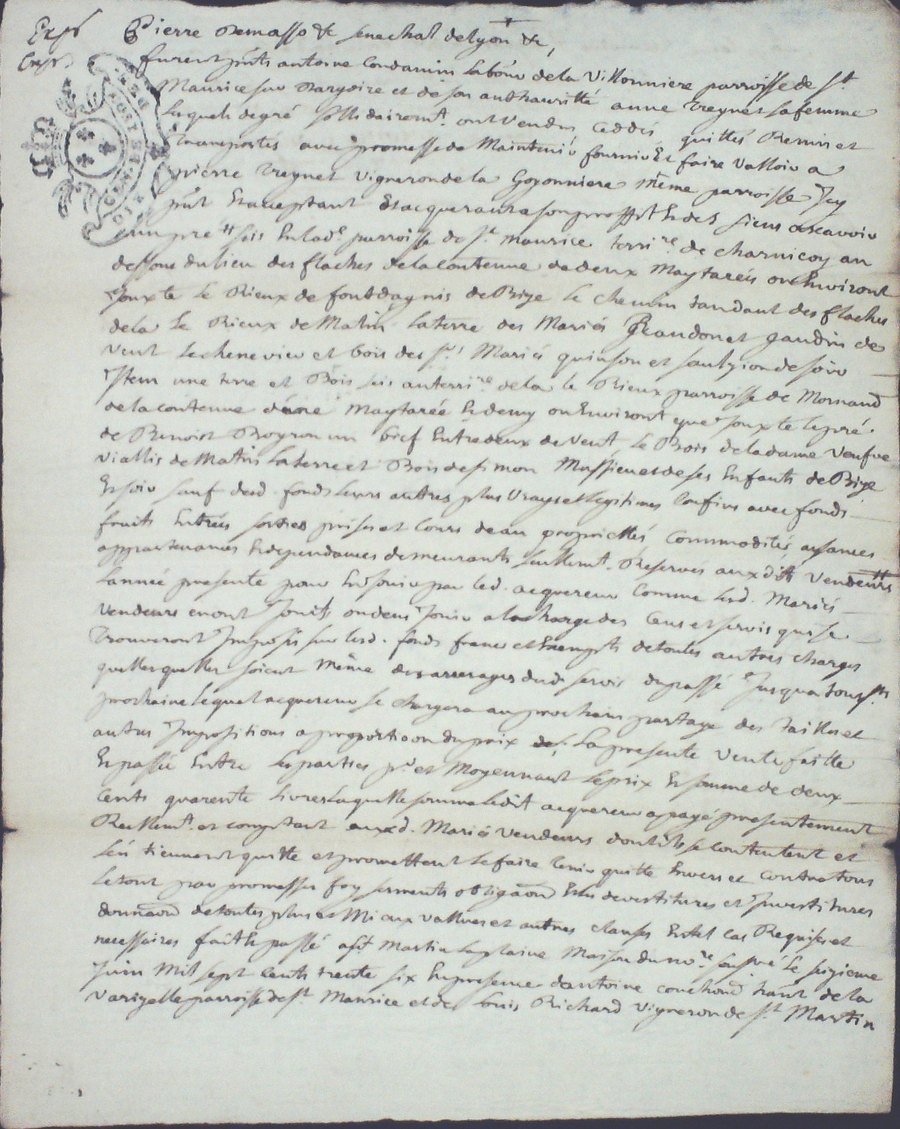 Exp.
Pierre Demasso &c senechal de Lyon &c,
furent pnts antoine Condamin labour de la Villonniere parroisse de St
Maurice sur Dargoire et de son authauritté anne Treynet sa femme
Lequels de gré sollidairemt. ont Vendu, Ceddé, quittés Remis et
transportés avec promesse de Maintenir fournir Et faire Valloir a
pierre Treynet vigneron de la Goyonniere même parroisse Icy
pnt Et acceptant Et acquerant a son proffit Et des siens a scavoir
sis En lade. parroisse de St. maurice terrire. de charnicoy au
dessous du lieu des flaches de la Contenue de deux Maytarées ou Environt
Jouxte le Rieux de font dagnis de Bize le chemin tandant des flaches
de la le Rieux de Matin la terre des Mariés Jeandonet gaudin de
vent le chenevier et bois des srs Mariés quinson et de soir
Item une terre et Bois sis au terrire. de la le Rieux parroisse de Mornand
de la contenue d'une Maytarée Et demy ou Environt que Jouxte le pré
de Benoist Boyron un bief Entre deux de Vent, le Bois de la dame Veufve
Viallis de Matin la terre et Bois de simon Mussieu et de ses Enfants de Bize
Et soir sauf desd. fonds leurs autres plus Vrays et legitimes Confins avec fonds
fruits Entrées sorties prises et Cours deau proprietés Commodités aysances
appartenances Et dependances demeurants seullemt. Réservés auxdits Vendeurs
l'année presente pour En Jouir par led. acquereur Comme lesd. Mariés
Vendeurs en ont Jouit ou deu Jouir a la charge des Cens et servis qui se
Trouveront Imposés sur lesd. fonds francs et Exempts de toutes autres charges
quelles quelles soient Même des arrerages dud. servis du passé Jusqua toussts
prochaine lequel acquereur se chargera au prochain partage des tailles et
autres Impositions a proportion du prix des. La presente Vente faitte
Et passée Entre les parties pr. et Moyennant le prix Et somme de deux
Cents quarente livres laquelle somme ledit acquereur a payé presentement
Reellemt. et comptant auxd. Mariés Vendeurs dont ils se Contentent et
l'en tiennent quitte et promettent le faire tenir quitte Envers et Contre tous
le tout par promesses foy serments obligaons Et devestitures et Investitures
donnaon de toutes plus et Mieux vallues et autres clauses En tel Cas Requises et
necessaires fait et passé a St Martin la plaine Maison du nore. soussné le seizieme
Juin Mil sept Cents trente six En presence dantoine couchoud haut de la
Varizelle parroisse de St Maurice et de Louis Richard Vigneron de St. Martin